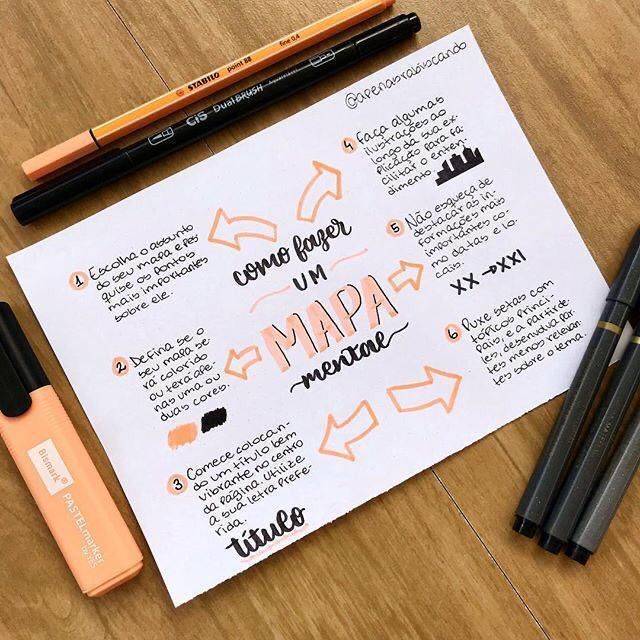 STABILO point 88 fine 0,4
CiS DUALBRUSH
@apenasrabiscando
COMO fazer
UM
MAPA
mental
1 Escolha o assunto
do seu mapa e pes
quise os pontos
mais importantes
sobre ele.
2 Defina se o
seu mapa se
rá colorido
ou terá ape
nas uma ou
duas cores.
3 Comece colocan-
do um título bem
vibrante no centro
da página. Utilize
a sua letra prefe-
rida.
título
4 Faça algumas
ilustrações ao
longo da sua ex-
plicação para fa
cilitar o enten-
dimento
5 Não esqueça de
destacar as in-
formações mais
importantes co-
mo datas e lo-
cais.
XX → XXI
6 Puxe setas com
tópicos princi-
pais, e a partir de
les, desenvolva por
tes menos relevan
tes sobre o tema.
Bismark
PASTELmarker